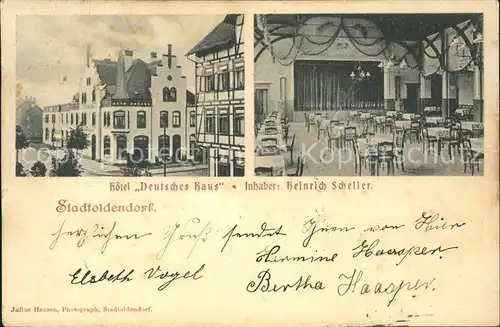 Hôtel „Deutsches Haus“ - Inhaber: Heinrich Scheller.
Stadtoldendorf.
herzlichen Gruß sendet Ihnen von Hier
Hermine Haasper.
Elsbeth Vogel
Bertha Haasper.
Julius Hansen, Photograph, Stadtoldendorf.